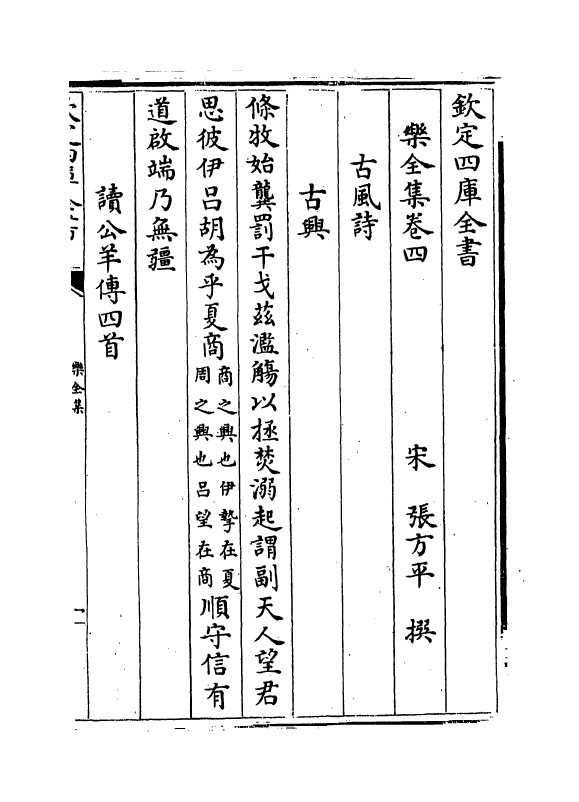 欽定四庫全書
樂全集卷四
宋 張方平 撰
古風詩
古興
條牧始龔罰干戈茲濫觴以拯焚溺起謂副天人望君
思彼伊呂胡為乎夏商商之興也伊摯在夏周之興也呂望在商順守信有
道啟端乃無疆
讀公羊傳四首
樂全集
一